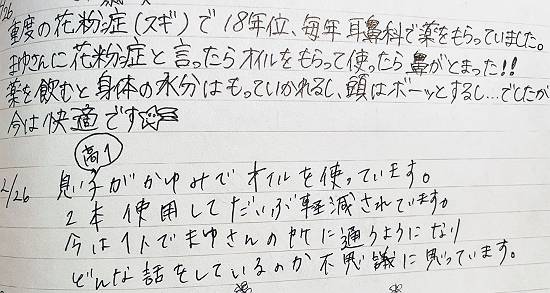 /26
重度の花粉症(スギ)で18年位、毎年耳鼻科で薬をもらっていました。
まゆさんに花粉症と言ったらオイルをもらって使ったら鼻がとまった!!
薬を飲むと身体の水分はもっていかれるし、頭はボーッとするし…でしたが
今は快適です☆
高1
2/26 息子がかゆみでオイルを使っています。
2本使用してだいぶ軽減されています。
今は1人でまゆさんの所に通うようになり
どんな話をしているのか不思議に思っています。